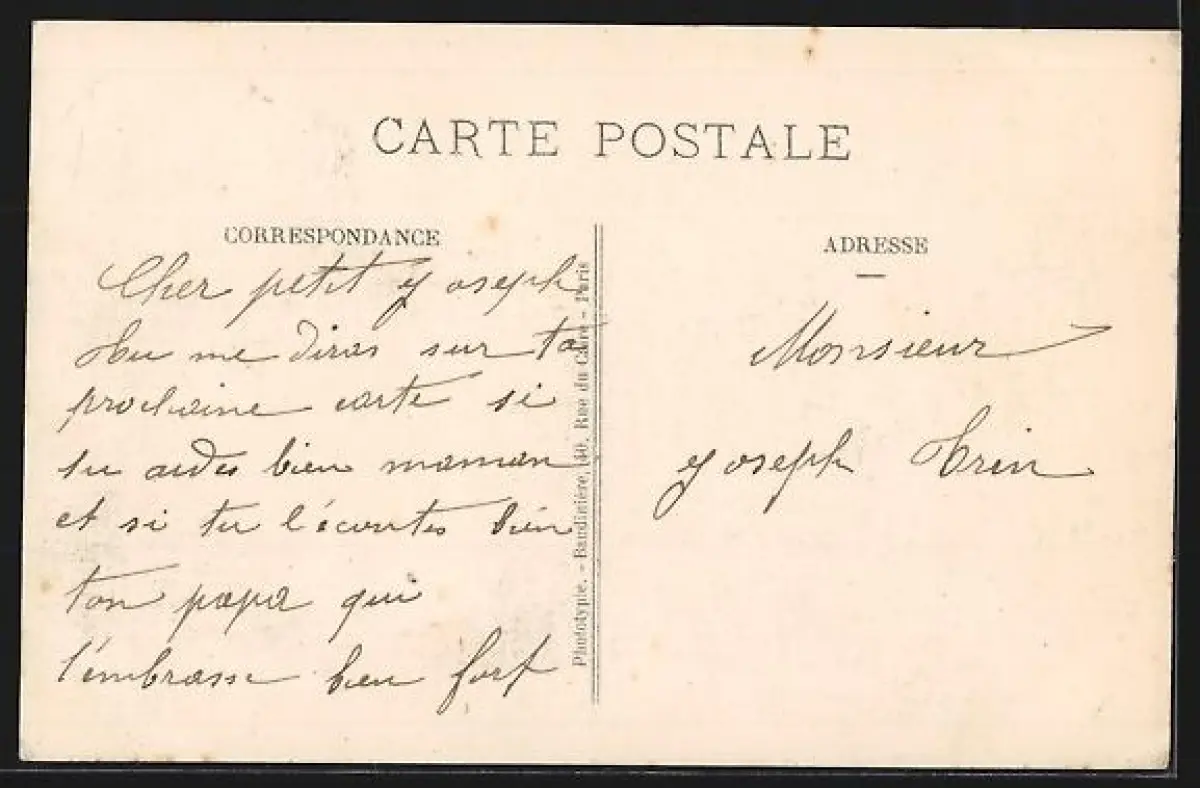 CARTE POSTALE
CORRESPONDANCE
ADRESSE
Cher petit Joseph
tu me diras sur ta
prochaine carte si
tu aides bien maman
et si tu l'écoutes bien
ton papa qui
t'embrasse bien fort
Phototypie. - Baudinière, 40, Rue du Caire - Paris
Monsieur
Joseph Trin